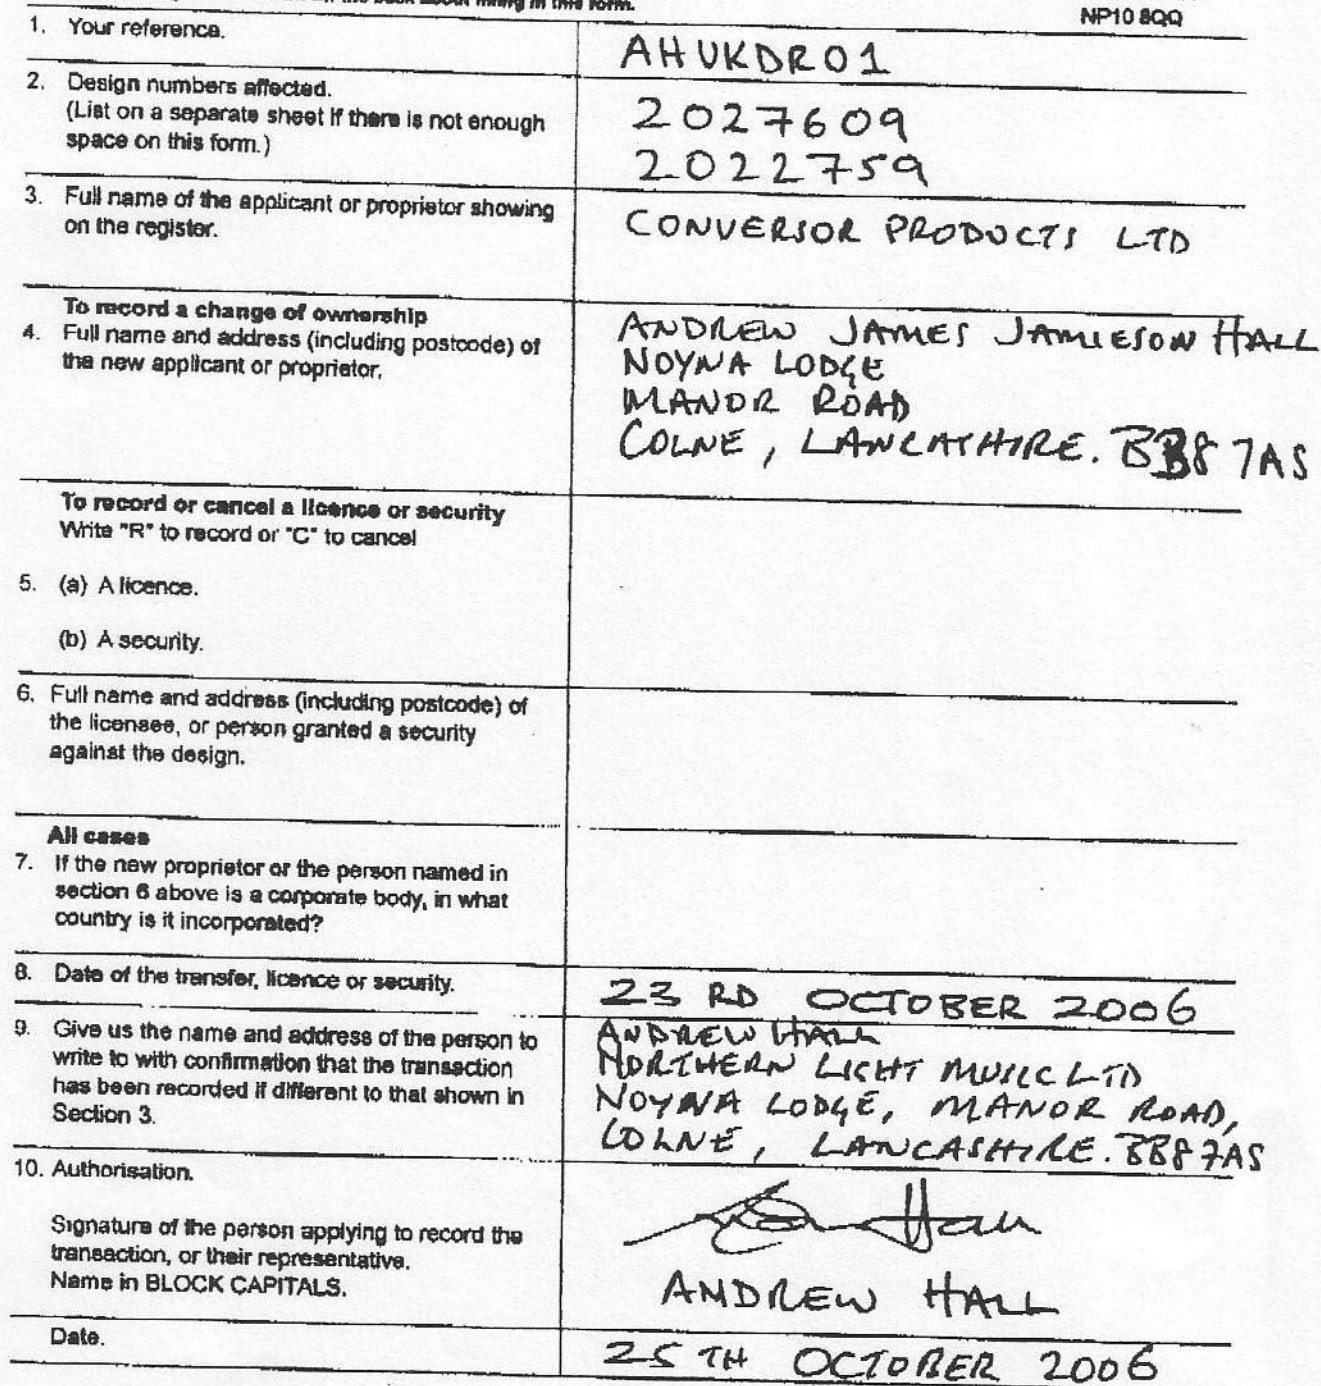 in this form.
NP10 8QQ
1. Your reference.
AHUKDR01
2. Design numbers affected.
(List on a separate sheet if there is not enough
space on this form.)
2027609
2022759
3. Full name of the applicant or proprietor showing
on the register.
CONVERSOR PRODUCTS LTD
To record a change of ownership
4. Full name and address (including postcode) of
the new applicant or proprietor.
ANDREW JAMES JAMIESON HALL
NOYNA LODGE
MANOR ROAD
COLNE, LANCASHIRE. BB8 7AS
To record or cancel a licence or security
Write "R" to record or "C" to cancel
5. (a) A licence.
(b) A security.
6. Full name and address (including postcode) of
the licensee, or person granted a security
against the design.
All cases
7. If the new proprietor or the person named in
section 6 above is a corporate body, in what
country is it incorporated?
8. Date of the transfer, licence or security.
23 RD OCTOBER 2006
9. Give us the name and address of the person to
write to with confirmation that the transaction
has been recorded if different to that shown in
Section 3.
ANDREW HALL
NORTHERN LIGHT MUSIC LTD
NOYNA LODGE, MANOR ROAD,
COLNE, LANCASHIRE. BB8 7AS
10. Authorisation.
Signature of the person applying to record the
transaction, or their representative.
Name in BLOCK CAPITALS.
Hall
ANDREW HALL
Date.
25 TH OCTOBER 2006